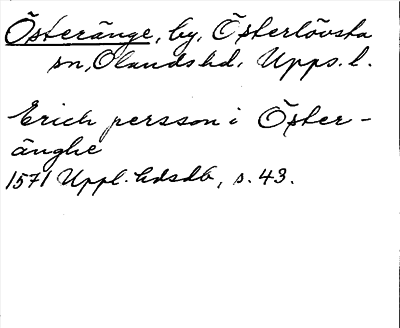 Österänge, by, Österlövsta
sn, Olands hd, Upps. l.
Erich persson i Öster-
änghe
1571 Uppl. hdsdb, s. 43.